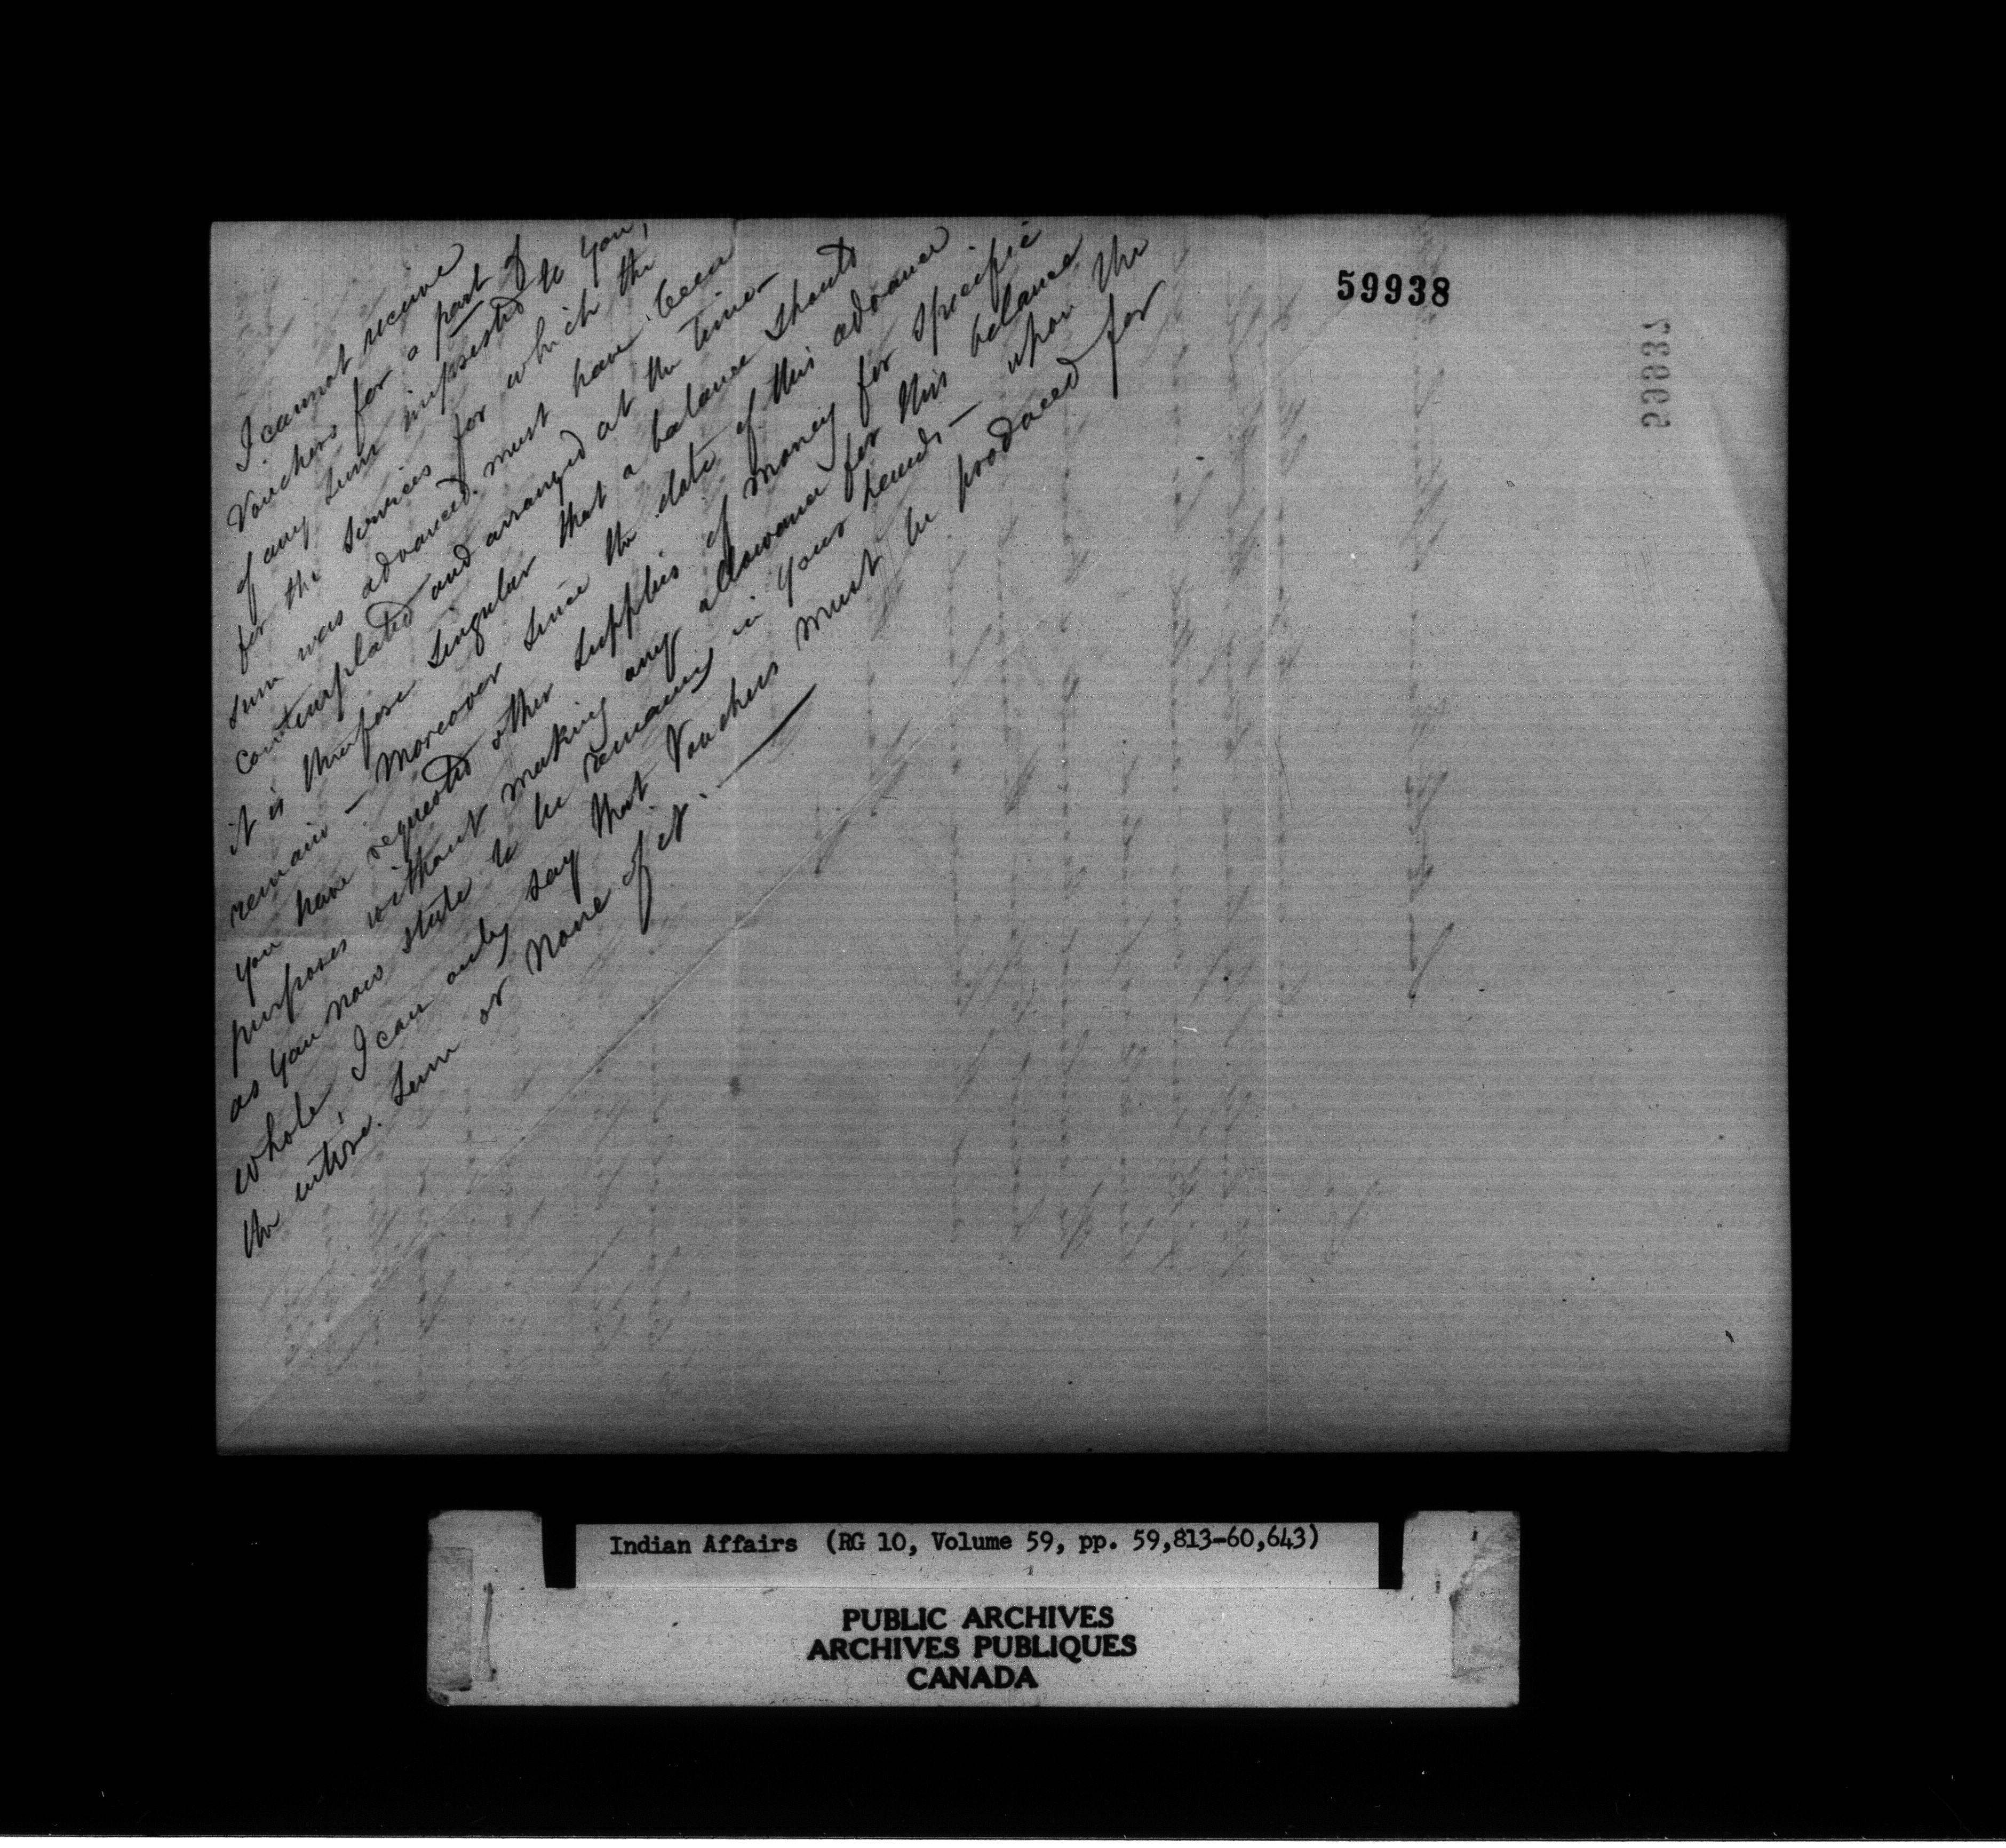 I cannot receive
Vouchers for a part of
of any sum impsested to you,
for the services for which the
sum was advanced must have been
contemplated and arranged at the time -
it is therefore singular that a balance should
remain - Moreover since the date of this advance
you have requested other supplies of money for specific
purposes without making any allowance for this balance
as you now state to be remaing in your hands - upon the
whole I can only say that Vouchers must be produced for
the entire sum or none of it. -
59938
59937
Indian Affairs (RG 10, Volume 59, pp. 59,813-60,643)
PUBLIC ARCHIVES
ARCHIVES PUBLIQUES
CANADA